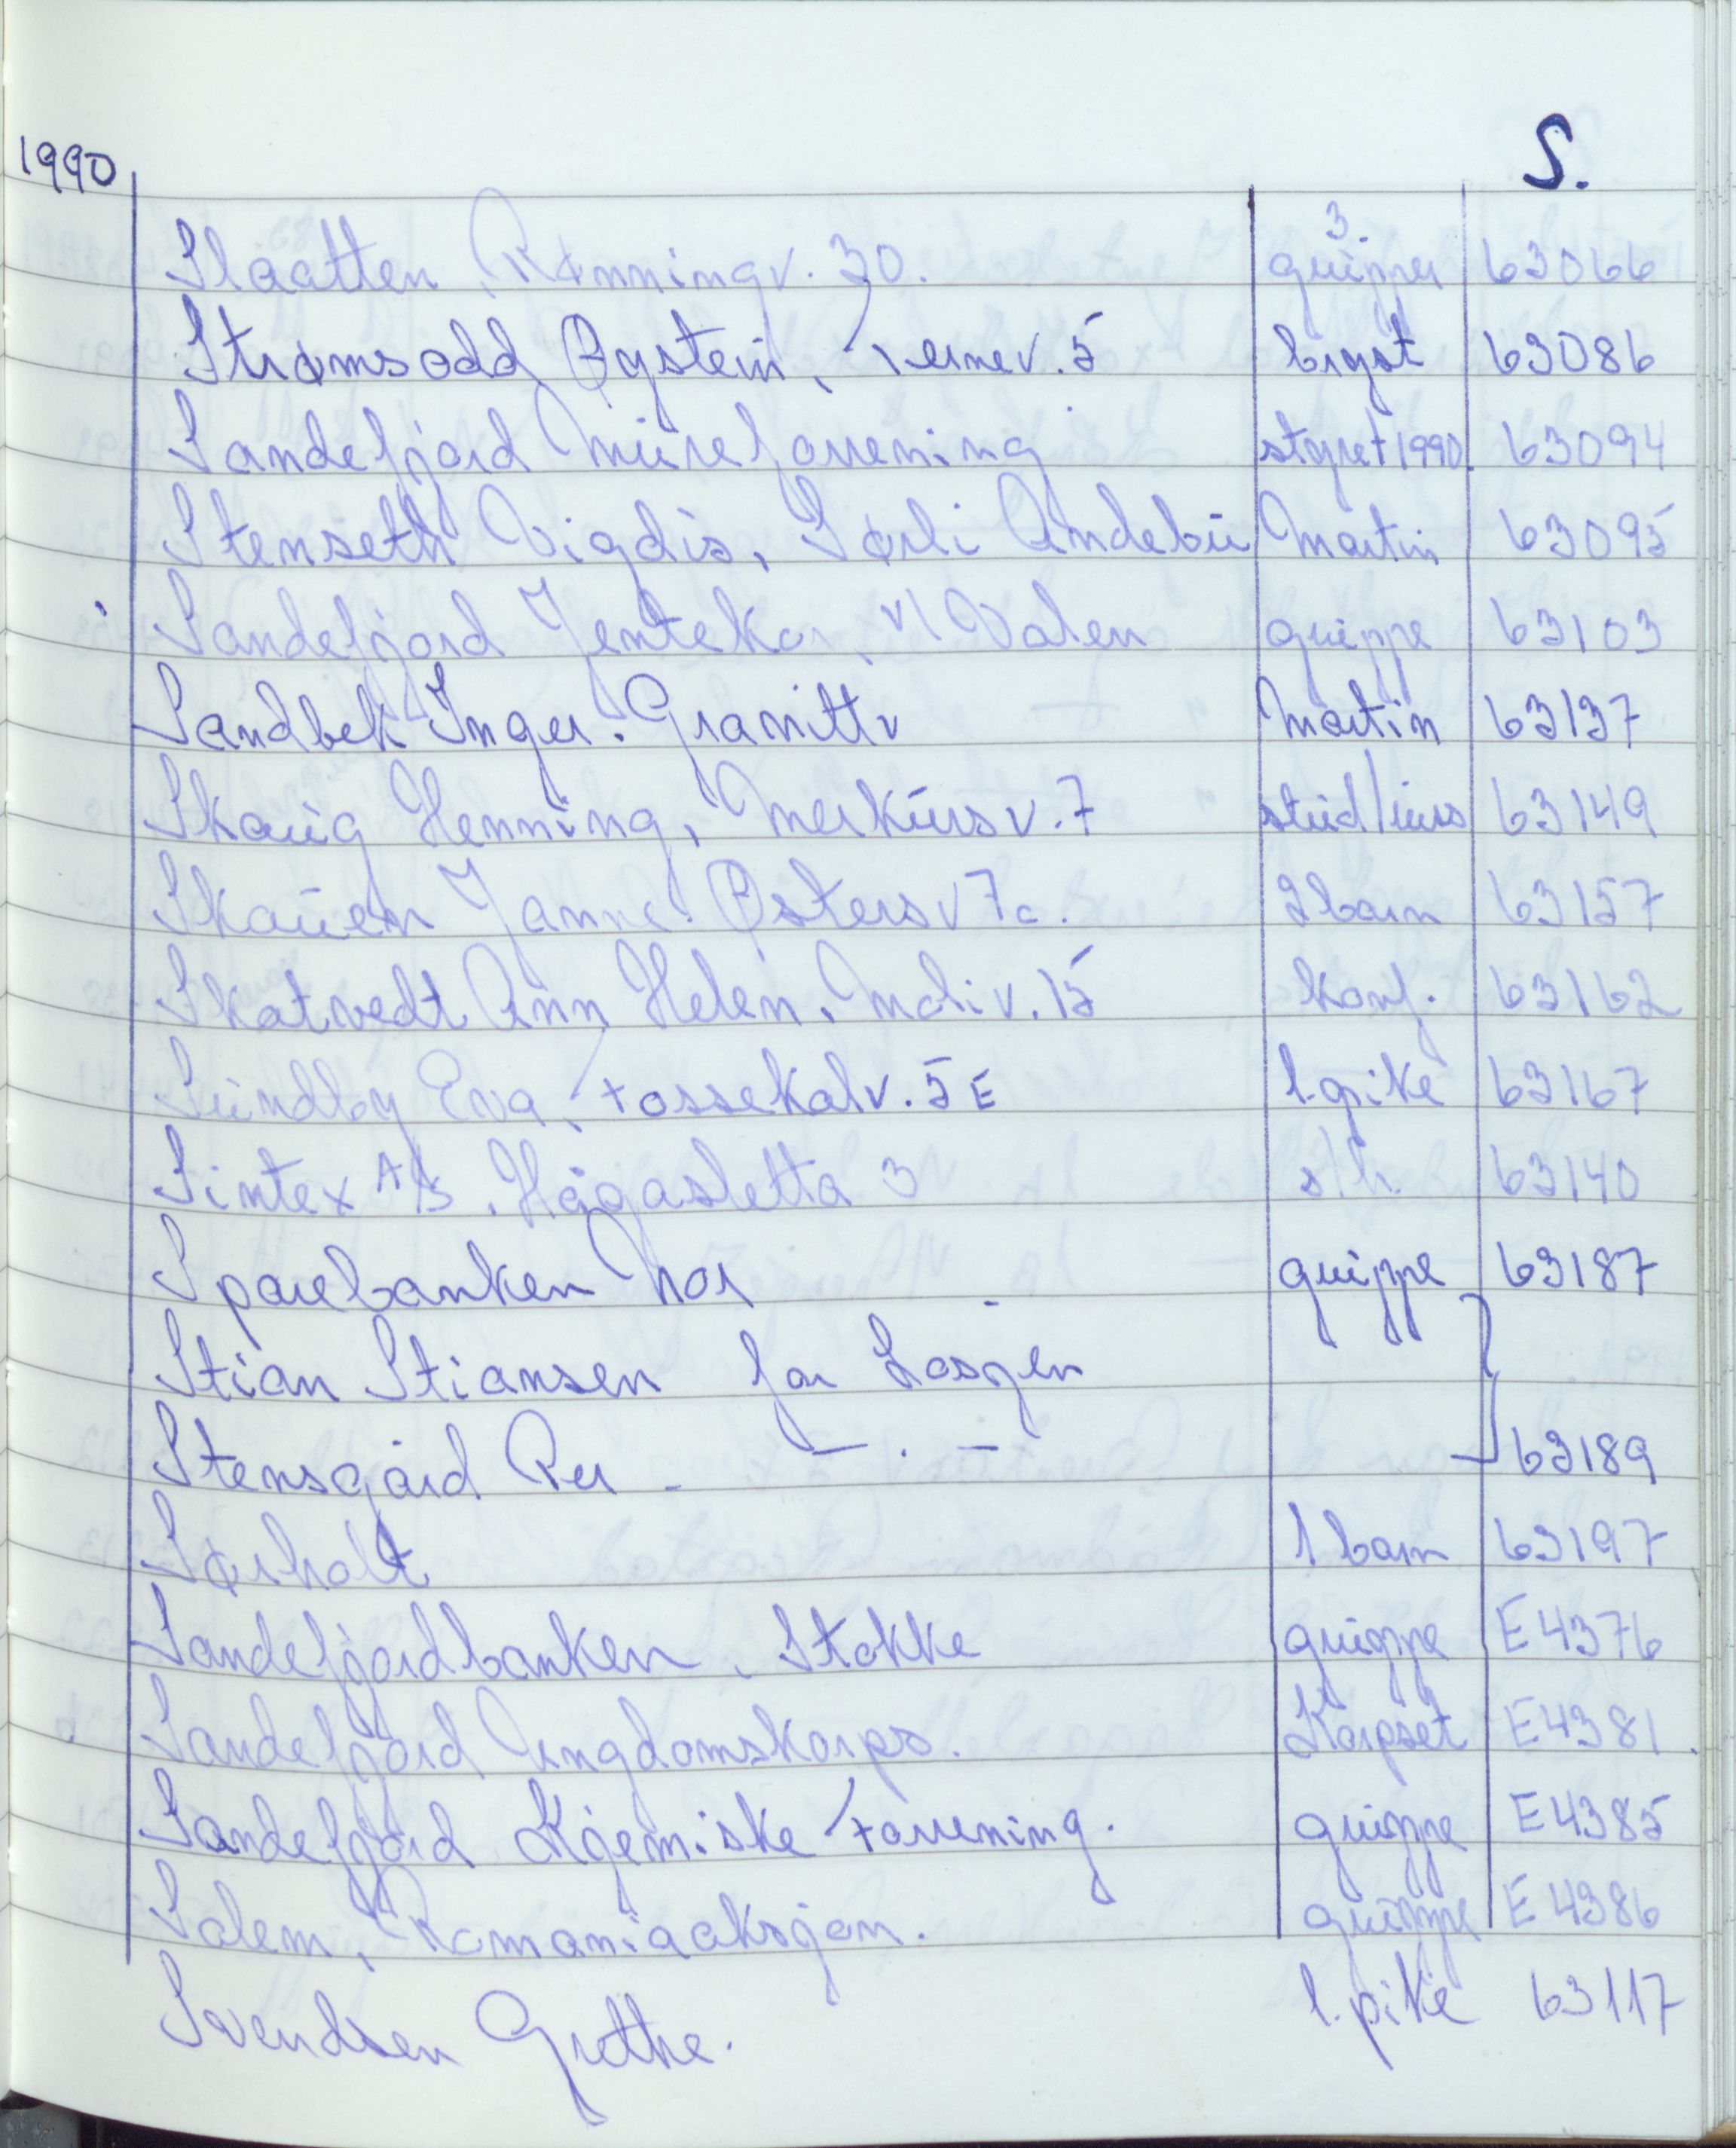 1990 S.
Slaatten, Rønningv. 30. 3. grupper 63066
Strømsodd Øystein, Fernev. 5 bryst 63086
Sandefjord Mürerforrening styret 1990. 63094
Stenseth Vigdis, Sørli Andebu Martin 63095
Sandefjord Jentekor, v/ Valen gruppe 63103
Sandbek Inger. Granittv Martin 63137
Skaug Henning, Merkursv. 7 stud/russ 63149
Skauen Janne. Østersv 7c. 2 barn 63157
Skatvedt Ann Helen, Moliv. 15 konf. 63162
Sundby Eva, Fossekalv. 5E 1. pike 63167
Sintex A/S. Hågasletta 3 s/h. 63140
Sparebanken Nor gruppe 63187
Stian Stiansen for Losjen
Stensgård Per — . — 63189
Sørholt 1 barn 63197
Sandefjordbanken, Stokke gruppe E4376
Sandefjord Ungdomskorps. Korpset E4381.
Sandefjord Kjemiske Forrening. gruppe E4385
Salem, Romaniaaksjon. gruppe E4386
Svendsen Grethe. 1. pike 63117